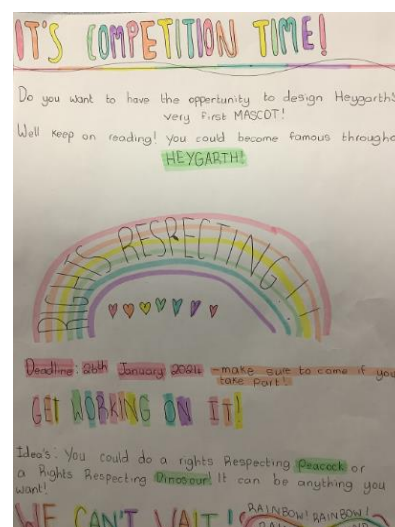 IT'S COMPETITION TIME!
Do you want to have the oppertunity to design Heygarth's
very first MASCOT!
Well keep on reading! You could become famous througho
HEYGARTH!
RIGHTS RESPECTING!!
Deadline: 26th January 2024 -make sure to come if you
take part!
GET WORKING ON IT!
Idea's: You could do a rights Respecting Peacock or
a Rights Respecting Dinosour! It can be anything you
want!
WE CAN'T WAIT!
RAINBOW! RAINBOW!